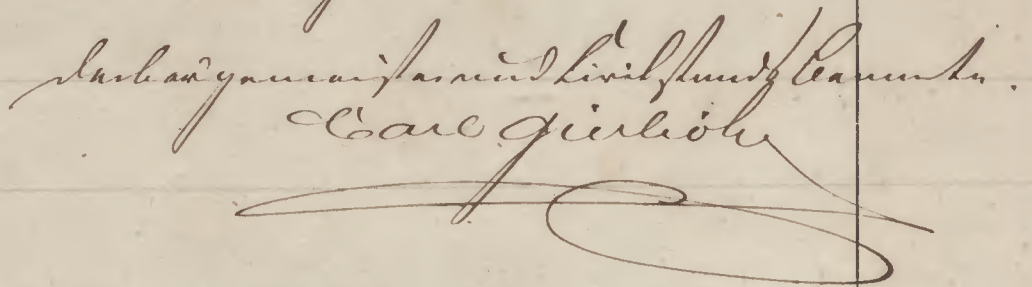 Der bürgermeister und Civilstands beamte.
Carl